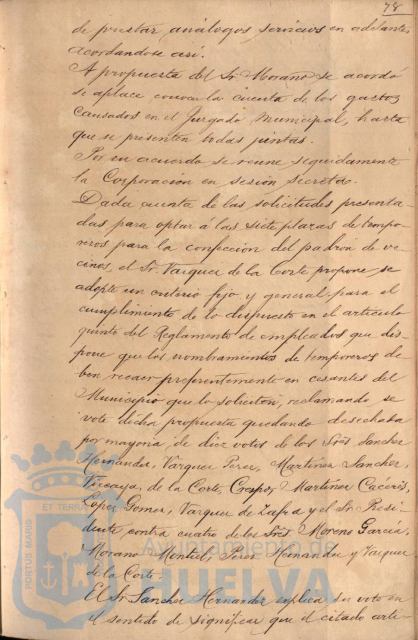 78
de prestar análogos servicios en adelante,
acordandose así.
A propuesta del Sr Morano se acordó
se aplace conocer la cuenta de los gastos
causados en el Juzgado Municipal, hasta
que se presenten todas juntas.
Por su acuerdo se reune seguidamente
la Corporacion en sesión secreta.
Dada cuenta de las solicitudes presenta-
das para optar á las siete plazas de tempo-
reros para la confección del padrón de ve-
cinos, el Sr. Vazquez de la Corte propone se
adopte un criterio fijo y general para el
cumplimiento de lo dispuesto en el artículo
quinto del Reglamento de empleados que dis-
pone que los nombramientos de temporeros de-
ben recaer preferentemente en cesantes del
Municipio que lo soliciten, reclamando se
vote dicha propuesta quedando desechada
por mayoría de diez votos de los Sres Sanchez
Hernandez, Vazquez Perez, Martinez Sanchez,
Vizcaya, de la Corte, Crespo, Martinez Caceris,
Lopez Gomez, Vazquez de Zafra y el Sr Presi-
dente contra cuatro de los Sres. Moreno García,
Morano Montiel, Perez Hernandez y Vazquez
de la Corte.
El Sr Sanchez Hernandez explica su voto en
el sentido de significar que el citado artí-
PORTUS MARIS ET TERRAE
Ayuntamiento de
HUELVA